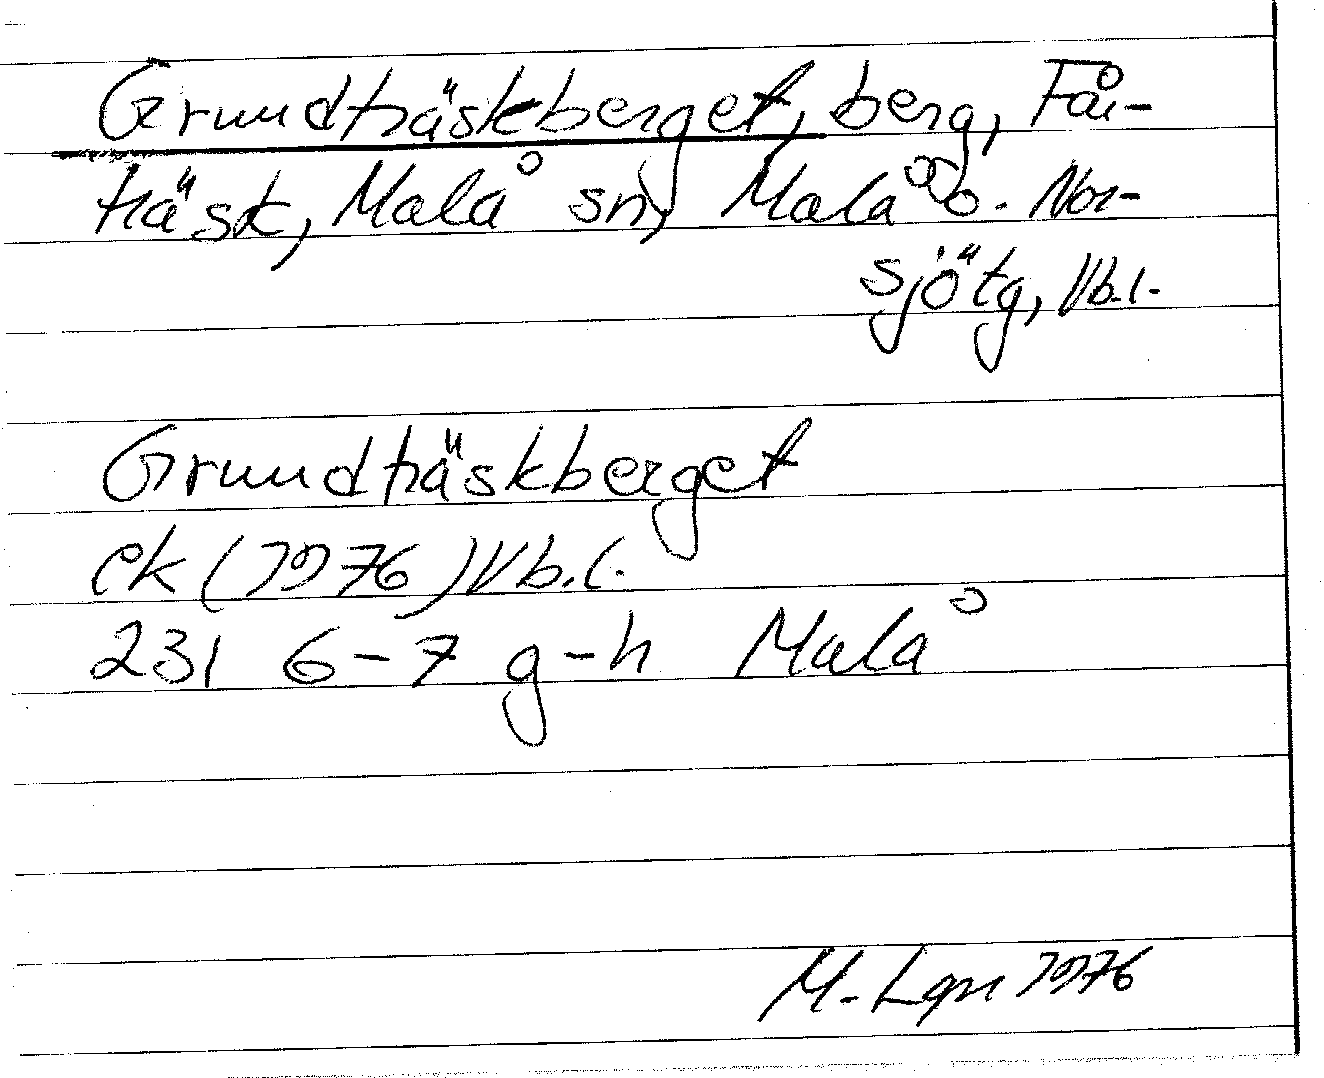 Grundträskberget, berg, Får-
träsk, Malå sn, Malå o. Nor-
sjö tg, Vb.l.
Grundträskberget
ek (1976) Vb.l.
231 6-7 g-h Malå
M. Lgn 1976